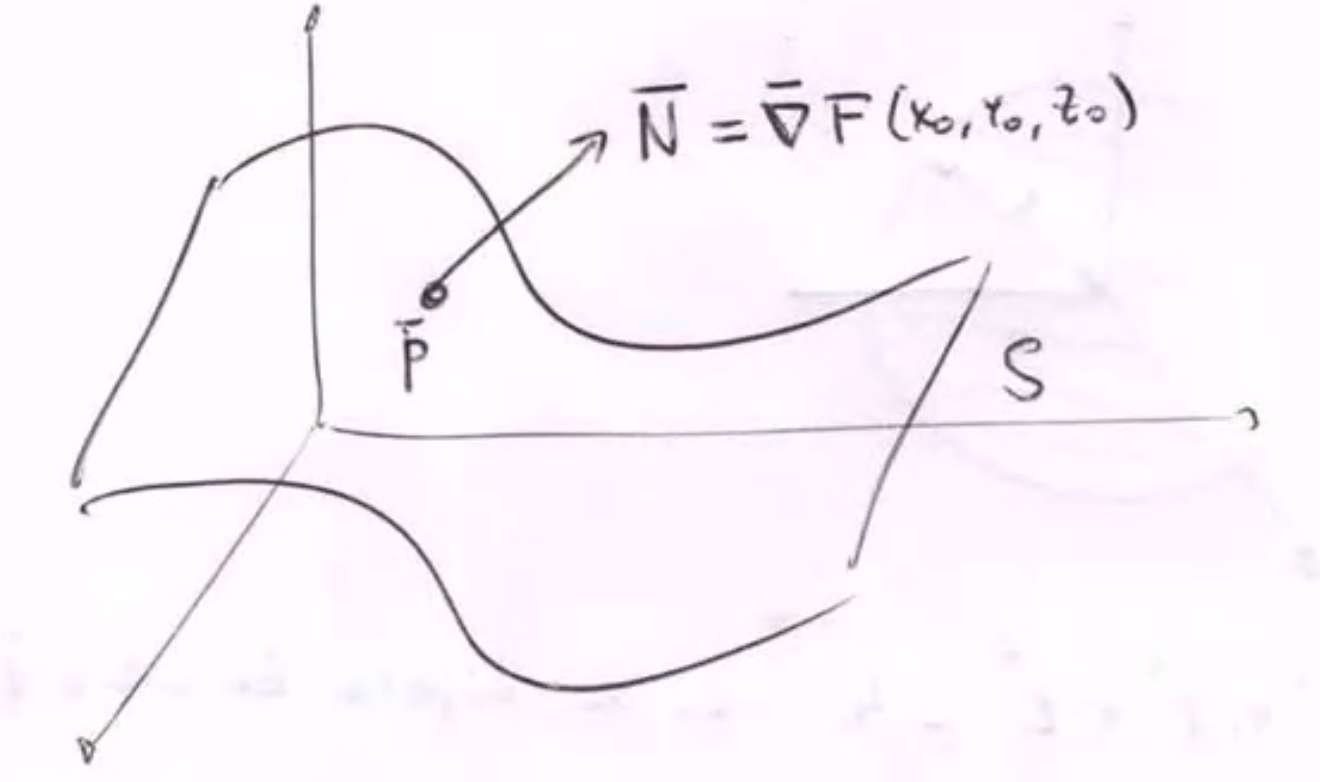 N̄ = ∇̄ F (x₀, y₀, z₀)
P̄
S